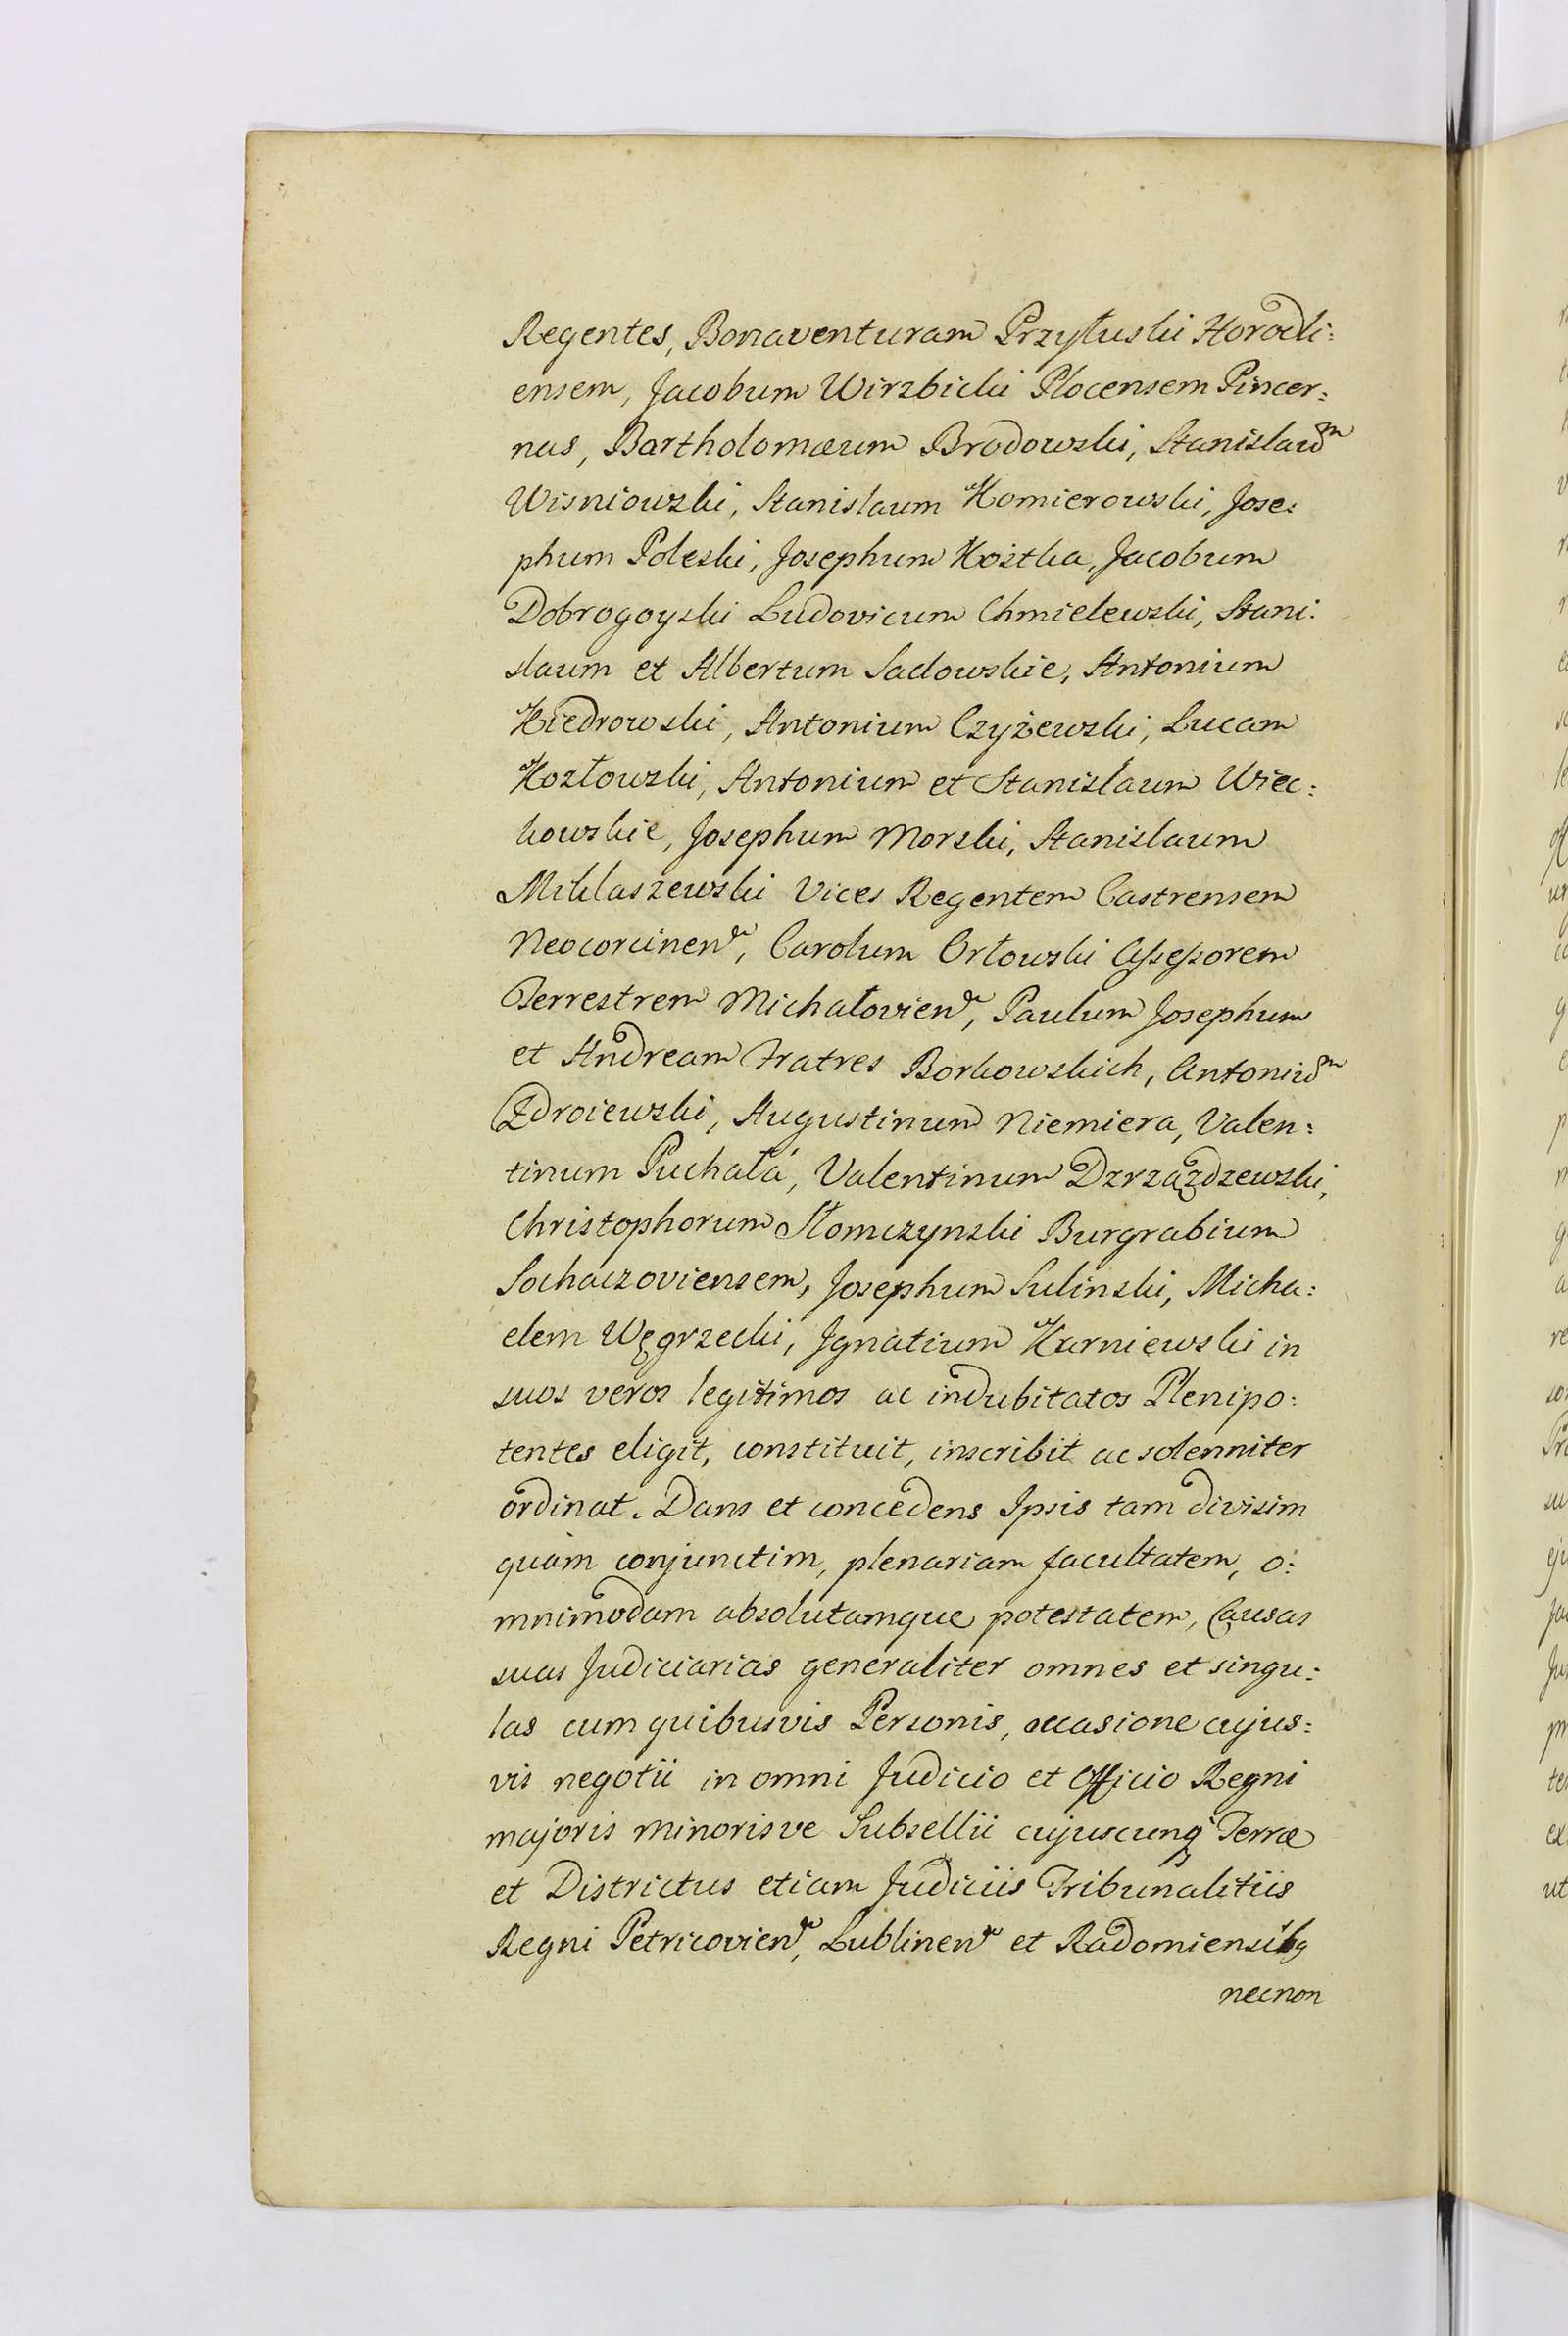 Regentes, Bonaventuram Przyłuski Horodli:
ensem, Jacobum Wirzbicki Plocensem Pincer:
nas, Bartholomæum Brodowski, Stanislaũm
Wisniowski, Stanislaum Komierowski, Jose:
phum Poleski, Josephum Kostka, Jacobum
Dobrogoyski Ludovicum Chmielewski, Stani:
slaum et Albertum Sadowskie, Antonium
Kiedrowski, Antonium Czyżewski, Lucam
Kozłowski, Antonium et Stanislaum Wiec:
kowskie, Josephum Morski, Stanislaum
Miklaszewski Vices Regentem Castrensem
Neocorcinen, Carolum Orłowski Assessorem
Terrestrem Michałovien, Paulum Josephum
et Andream Fratres Borkowskich, Antoniũm
Zdroiewski, Augustinum Niemiera, Valen:
tinum Puchała, Valentinum Dzrzązdzewski,
Christophorum Słomczynski Burgrabium
Sochaczoviensem, Josephum Sulinski, Micha:
elem Węgrzecki, Ignatium Karniewski in
suos veros legitimos ac indubitatos Plenipo:
tentes eligit, constituit, inscribit ac solenniter
ordinat. Dans et concedens Ipsis tam divisim
quàm conjunctim, plenariam facultatem, o:
mnimodam absolutamque potestatem, Causas
suas Judiciarias generaliter omnes et singu:
las cum quibusvis Personis, occasione cujus:
vis negotii in omni Judicio et Officio Regni
majoris minorisve Subsellii cujuscunq Terræ
et Districtus etiam Judiciis Tribunalitiis
Regni Petricovien, Lublinen et Radomiensibg
necnon